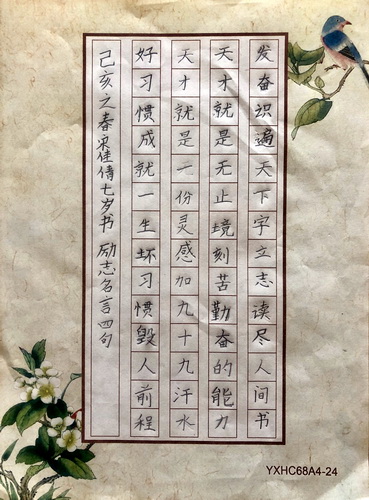 发奋识遍天下字立志读尽人间书
天才就是无止境刻苦勤奋的能力
天才就是一份灵感加九十九汗水
好习惯成就一生坏习惯毁人前程
己亥之春宋佳倩七岁书 励志名言四句
YXHC68A4-24